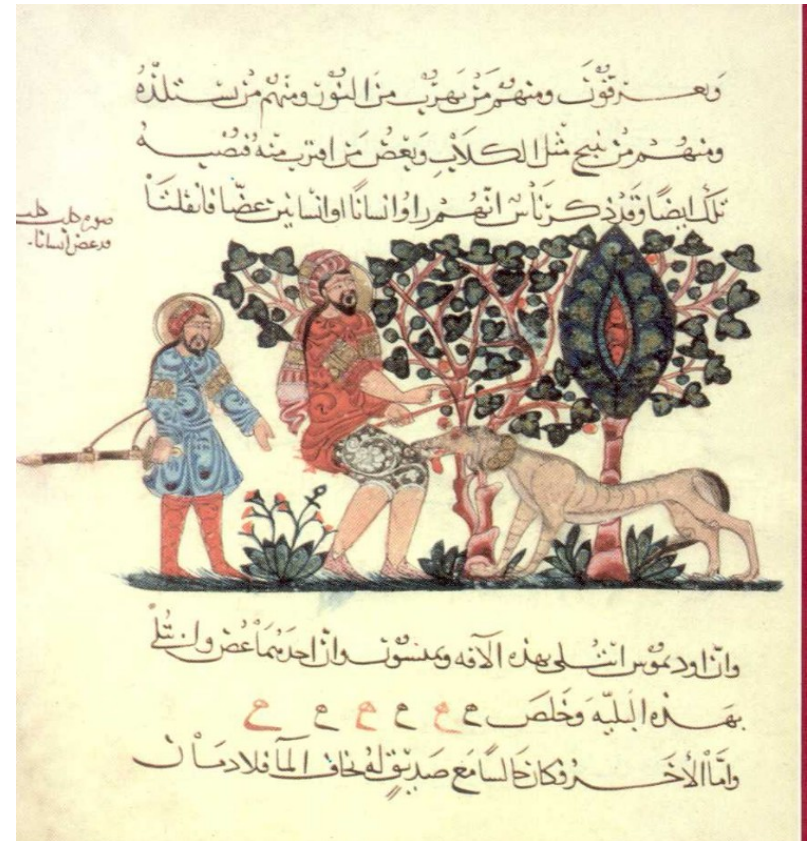 ويعرقون ومنهم من يهرب من النور ومنهم من يستلذه
ومنهم من ينبح مثل الكلاب ويعض من اقترب منه فتصيبه
تلك ايضا وقد ذكر ناس انهم راوا انسانا او انسانين عضا فانفلتا
صورة كلب كلب
قد عض انسانا.
وان اوديموس ابتلى بهذه الآفة وان احدهما عض وابتلي
بهذه البلية وخلص
واما الآخر فكان جالسا مع صديق له يخاف الما فلا